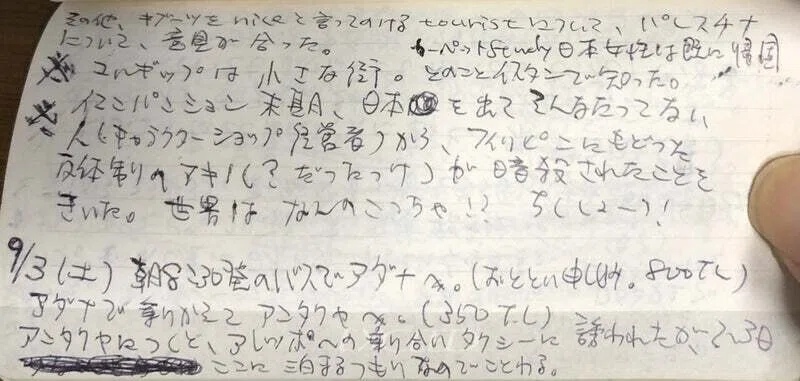 その他、キブーツをniceと言ってのけるtouristについて、パレスチナ
について、意見が合った。 カーペットstudy日本女性は既に帰国
ユルギップは小さな街。 とのことイスタンで知った。
イエニパンション 末期、日本を出てそんなたってない
人(キャラクターショップ経営者)から、フィリピンにもどった
反体制のアキノ(?だったっけ)が暗殺されたことを
きいた。世界はなんのこっちゃ!? ちくしょー!
9/3(土) 朝8:30発のバスでアダナへ。(おととい申し込み。800TL)
アダナで乗りかえてアンタクヤへ。(350T.L)
アンタクヤにつくと、アレッポへの乗り合いタクシーに誘われたが、
ここに泊まるつもりなのでことわる。